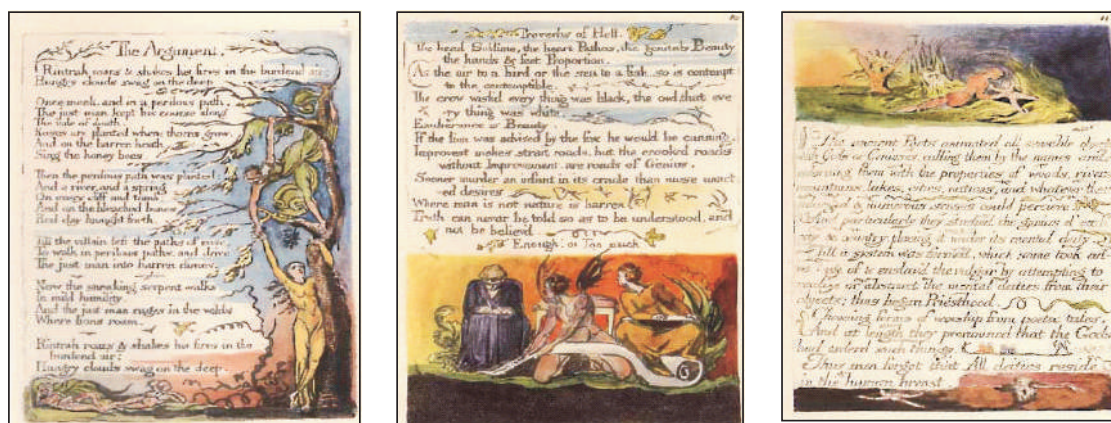 2
The Argument.
Rintrah roars & shakes his fires in the burdend air;
Hungry clouds swag on the deep
Once meek, and in a perilous path,
The just man kept his course along
The vale of death.
Roses are planted where thorns grow,
And on the barren heath
Sing the honey bees.
Then the perilous path was planted:
And a river, and a spring
On every cliff and tomb;
And on the bleached bones
Red clay brought forth.
Till the villain left the paths of ease,
To walk in perilous paths, and drive
The just man into barren climes.
Now the sneaking serpent walks
In mild humility.
And the just man rages in the wilds
Where lions roam.
Rintrah roars & shakes his fires in the
burdend air;
Hungry clouds swag on the deep.
10
Proverbs of Hell.
The head Sublime, the heart Pathos, the genitals Beauty
the hands & feet Proportion.
As the air to a bird or the sea to a fish, so is contempt
to the contemptible.
The crow wish'd every thing was black, the owl, that eve
-ry thing was white.
Exuberance is Beauty.
If the lion was advised by the fox, he would be cunning.
Improvent makes strait roads, but the crooked roads
without Improvement, are roads of Genius.
Sooner murder an infant in its cradle than nurse unact
-ed desires
Where man is not nature is barren.
Truth can never be told so as to be understood, and
not be believ'd.
Enough! or Too much
11
The ancient Poets animated all sensible objects
with Gods or Geniuses, calling them by the names and
adorning them with the properties of woods, rivers,
mountains, lakes, cities, nations, and whatever their
& numerous senses could percieve.
And particularly they studied the genius of each
city & country, placing it under its mental deity.
Till a system was formed, which some took ad-
-vantage of & enslav'd the vulgar by attempting to
realize or abstract the mental deities from their
objects; thus began Priesthood.
Choosing forms of worship from poetic tales.
And at length they pronounced that the Gods
had orderd such things.
Thus men forgot that All deities reside
in the human breast.